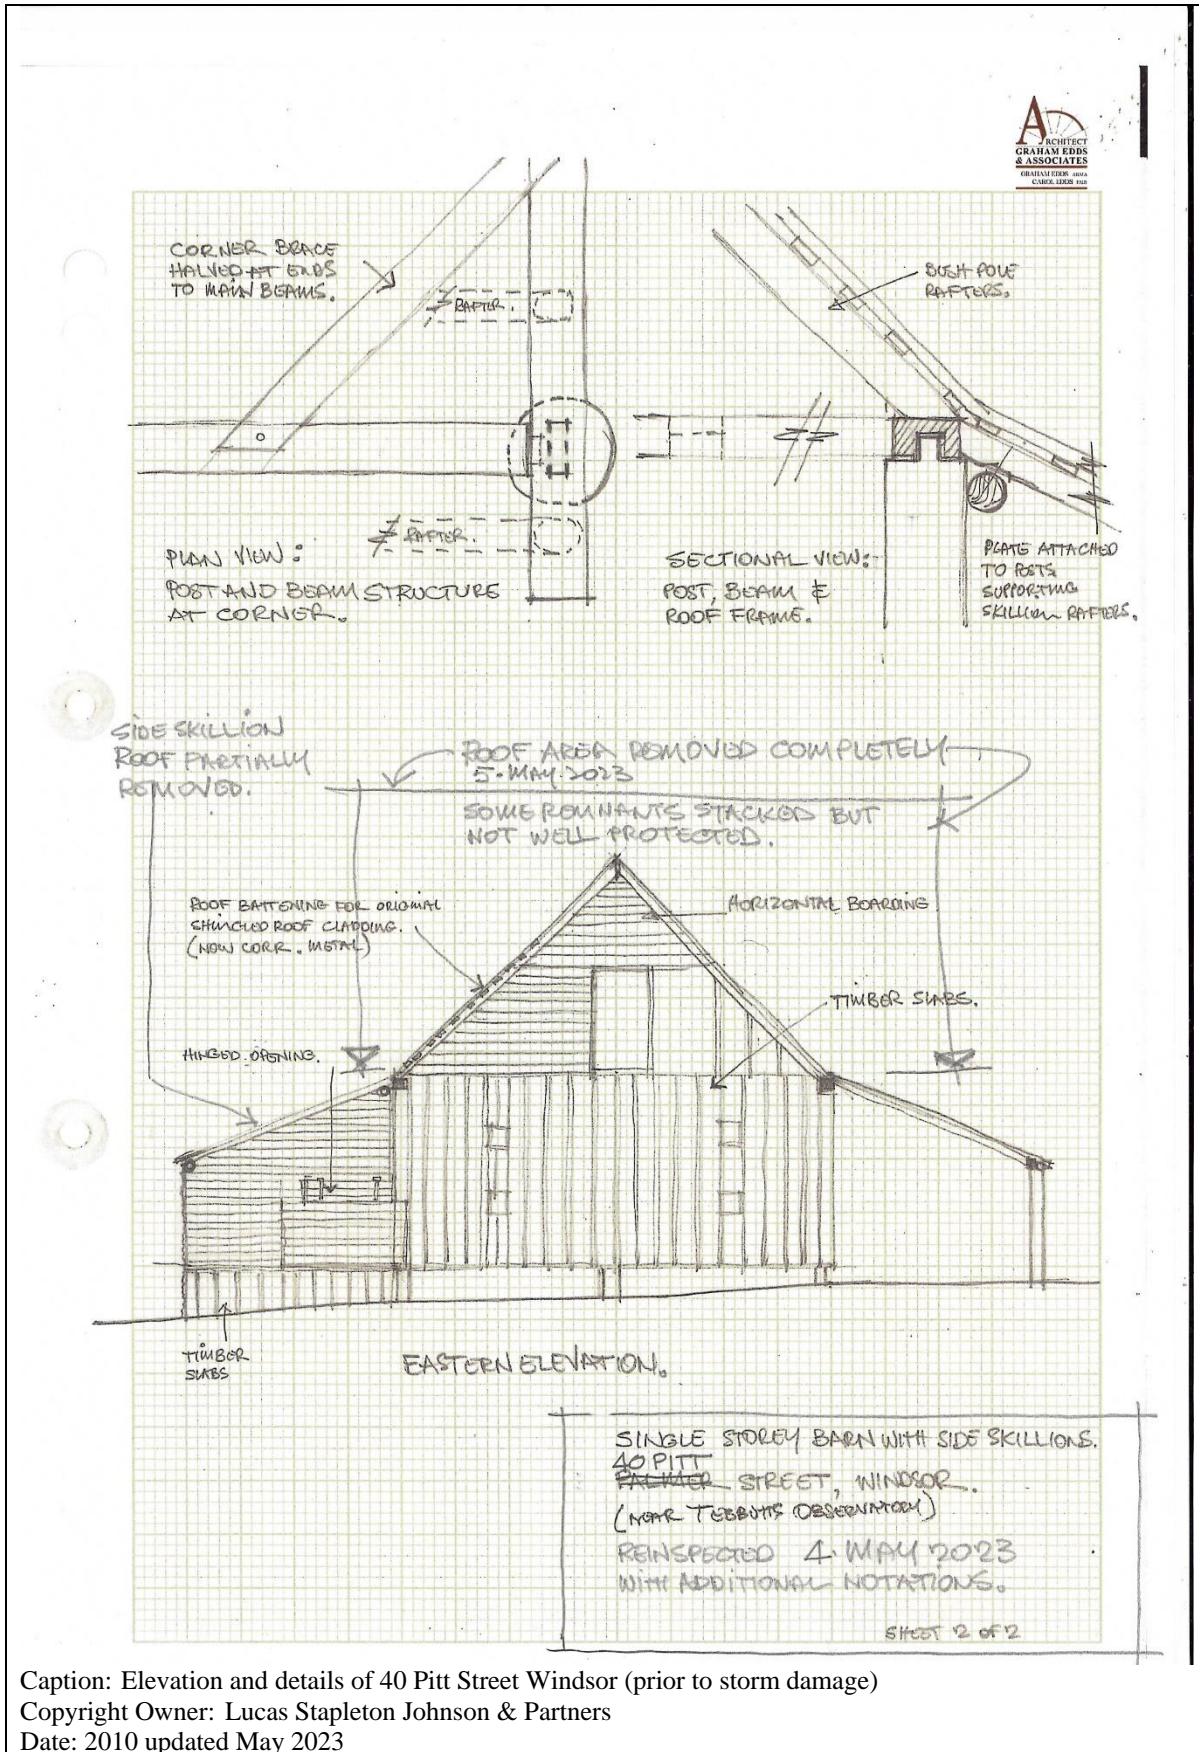 ARCHITECT
GRAHAM EDDS
& ASSOCIATES
GRAHAM EDDS
CAROL EDDS
CORNER BRACE
HALVED AT ENDS
TO MAIN BEAMS.
RAFTER.
BUSH POLE
RAFTERS.
RAFTER.
PLAN VIEW:
POST AND BEAM STRUCTURE
AT CORNER.
SECTIONAL VIEW:-
POST, BEAM &
ROOF FRAME.
PLATE ATTACHED
TO POSTS
SUPPORTING
SKILLION RAFTERS.
SIDE SKILLION
ROOF PARTIALLY
REMOVED.
ROOF AREA REMOVED COMPLETELY
5. MAY. 2023
SOME REMNANTS STACKED BUT
NOT WELL PROTECTED.
ROOF BATTENING FOR ORIGINAL
SHINGLED ROOF CLADDING.
(NOW CORR. METAL)
HORIZONTAL BOARDING
TIMBER SLABS.
HINGED OPENING.
TIMBER
SLABS
EASTERN ELEVATION.
SINGLE STOREY BARN WITH SIDE SKILLIONS.
40 PITT
PALMER STREET, WINDSOR.
(NEAR TEBBUTTS OBSERVATORY)
REINSPECTED 4. MAY 2023
WITH ADDITIONAL NOTATIONS.
SHEET 2 OF 2
Caption: Elevation and details of 40 Pitt Street Windsor (prior to storm damage)
Copyright Owner: Lucas Stapleton Johnson & Partners
Date: 2010 updated May 2023